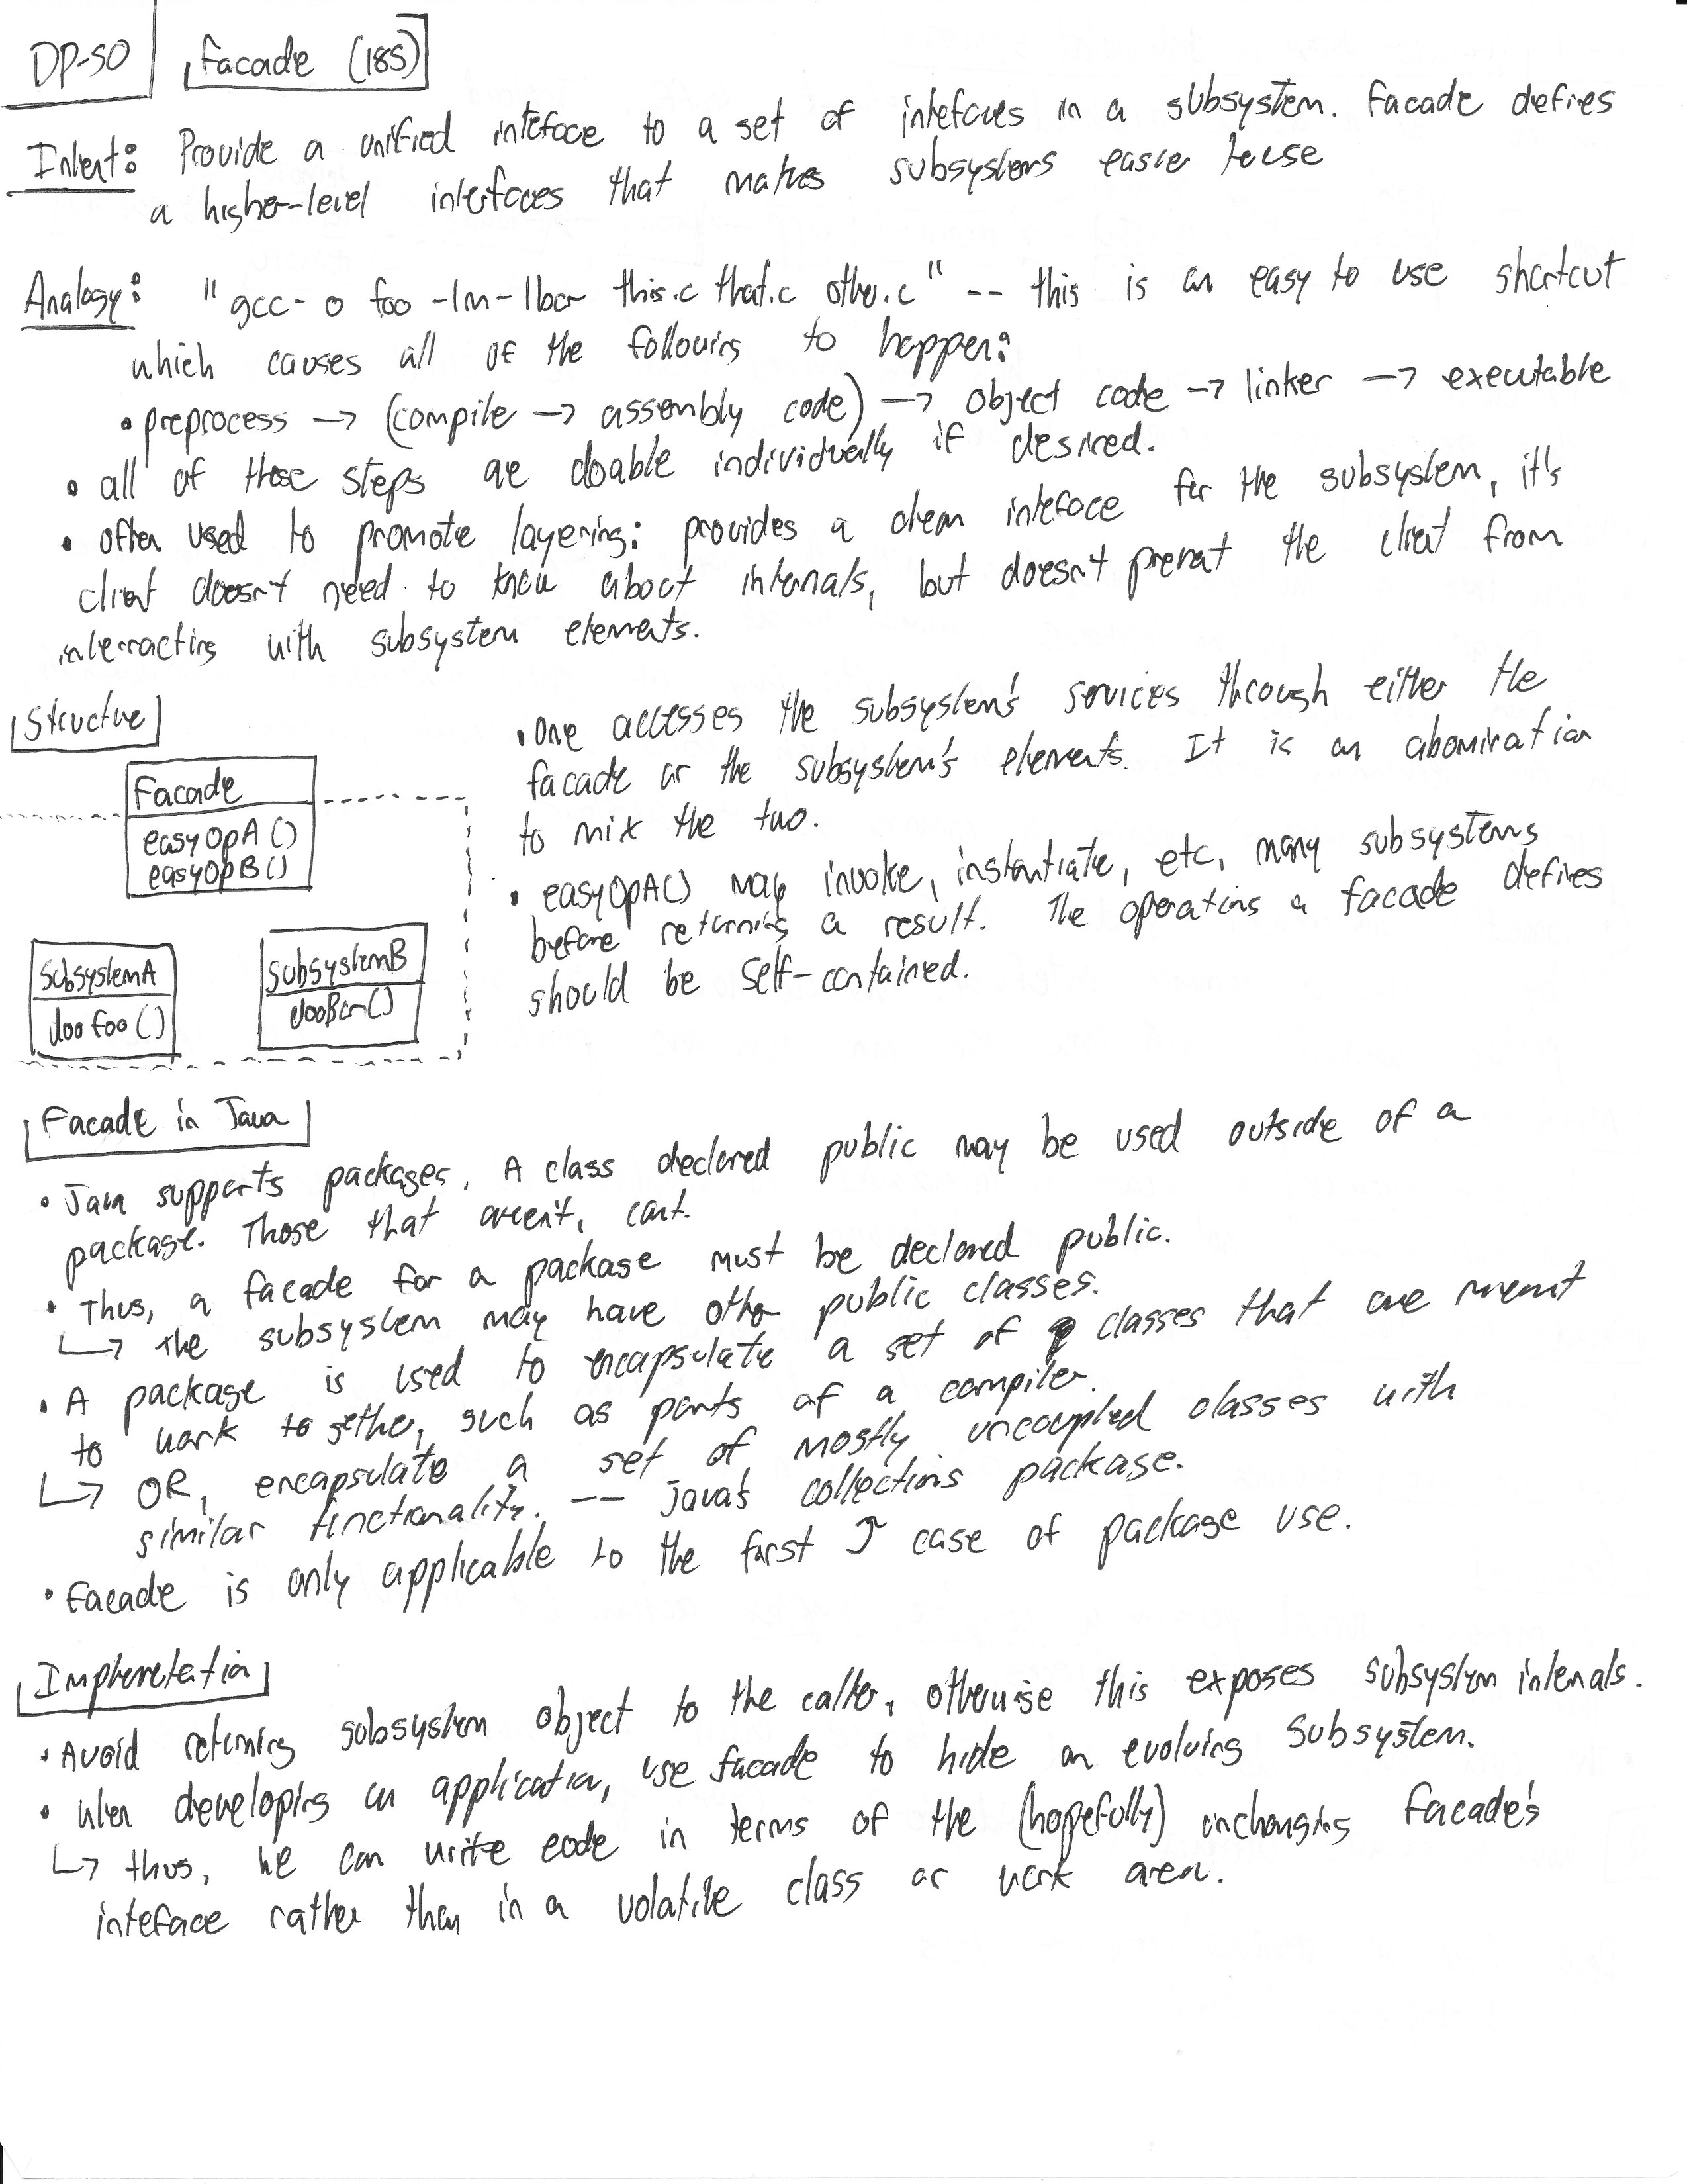 DP-50
Facade (185)
Intent: Provide a unified inteface to a set of intefaces in a subsystem. Facade defines
a higher-level interfaces that makes subsystems easier to use
Analogy: "gcc -o foo -lm -lbar this.c that.c other.c" -- this is an easy to use shortcut
which causes all of the following to happen:
• preprocess → (compile → assembly code) → object code → linker → executable
• all of these steps are doable individually if desired.
• often used to promote layering: provides a clean inteface for the subsystem, it's
client doesn't need to know about internals, but doesn't prevent the client from
interracting with subsystem elements.
Structure
Facade
easyOpA()
easyOpB()
SubsystemA
dooFoo()
SubsystemB
dooBar()
• One accesses the subsystem's services through either the
facade or the subsystem's elements. It is an abomination
to mix the two.
• easyOpA() may invoke, instantiate, etc, many subsystems
before returning a result. The operations a facade defines
should be self-contained.
Facade in Java
• Java supports packages. A class declared public may be used outside of a
package. Those that aren't, can't.
• Thus, a facade for a package must be declared public.
↳ the subsystem may have other public classes.
• A package is used to encapsulate a set of classes that are meant
to work together, such as parts of a compiler.
↳ OR, encapsulate a set of mostly uncoupled classes with
similar functionality. -- java's collections package.
• Facade is only applicable to the first case of package use.
Implementation
• Avoid returning subsystem object to the caller, otherwise this exposes subsystem internals.
• When developing an application, use facade to hide an evolving subsystem.
↳ thus, we can write code in terms of the (hopefully) unchanging facade's
inteface rather than in a volatile class or work area.